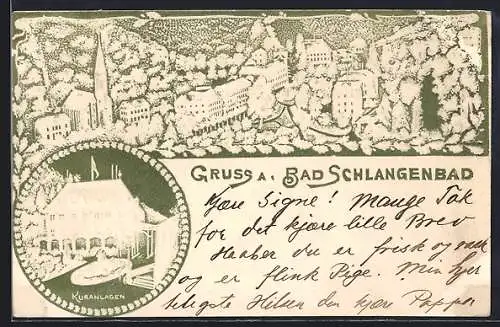 GRUSS A. BAD SCHLANGENBAD
Kjære Signe! Mange Tak
for det kjære lille Brev
Haaber du er frisk og
og er flink Pige. Min hjer
teligste Hilsen din kjære Pappa
KURANLAGEN